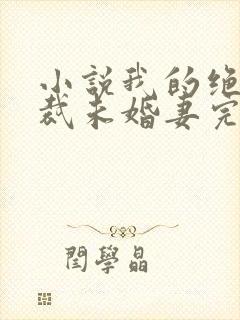 小說我的绝
裁未婚妻完
閆學晶